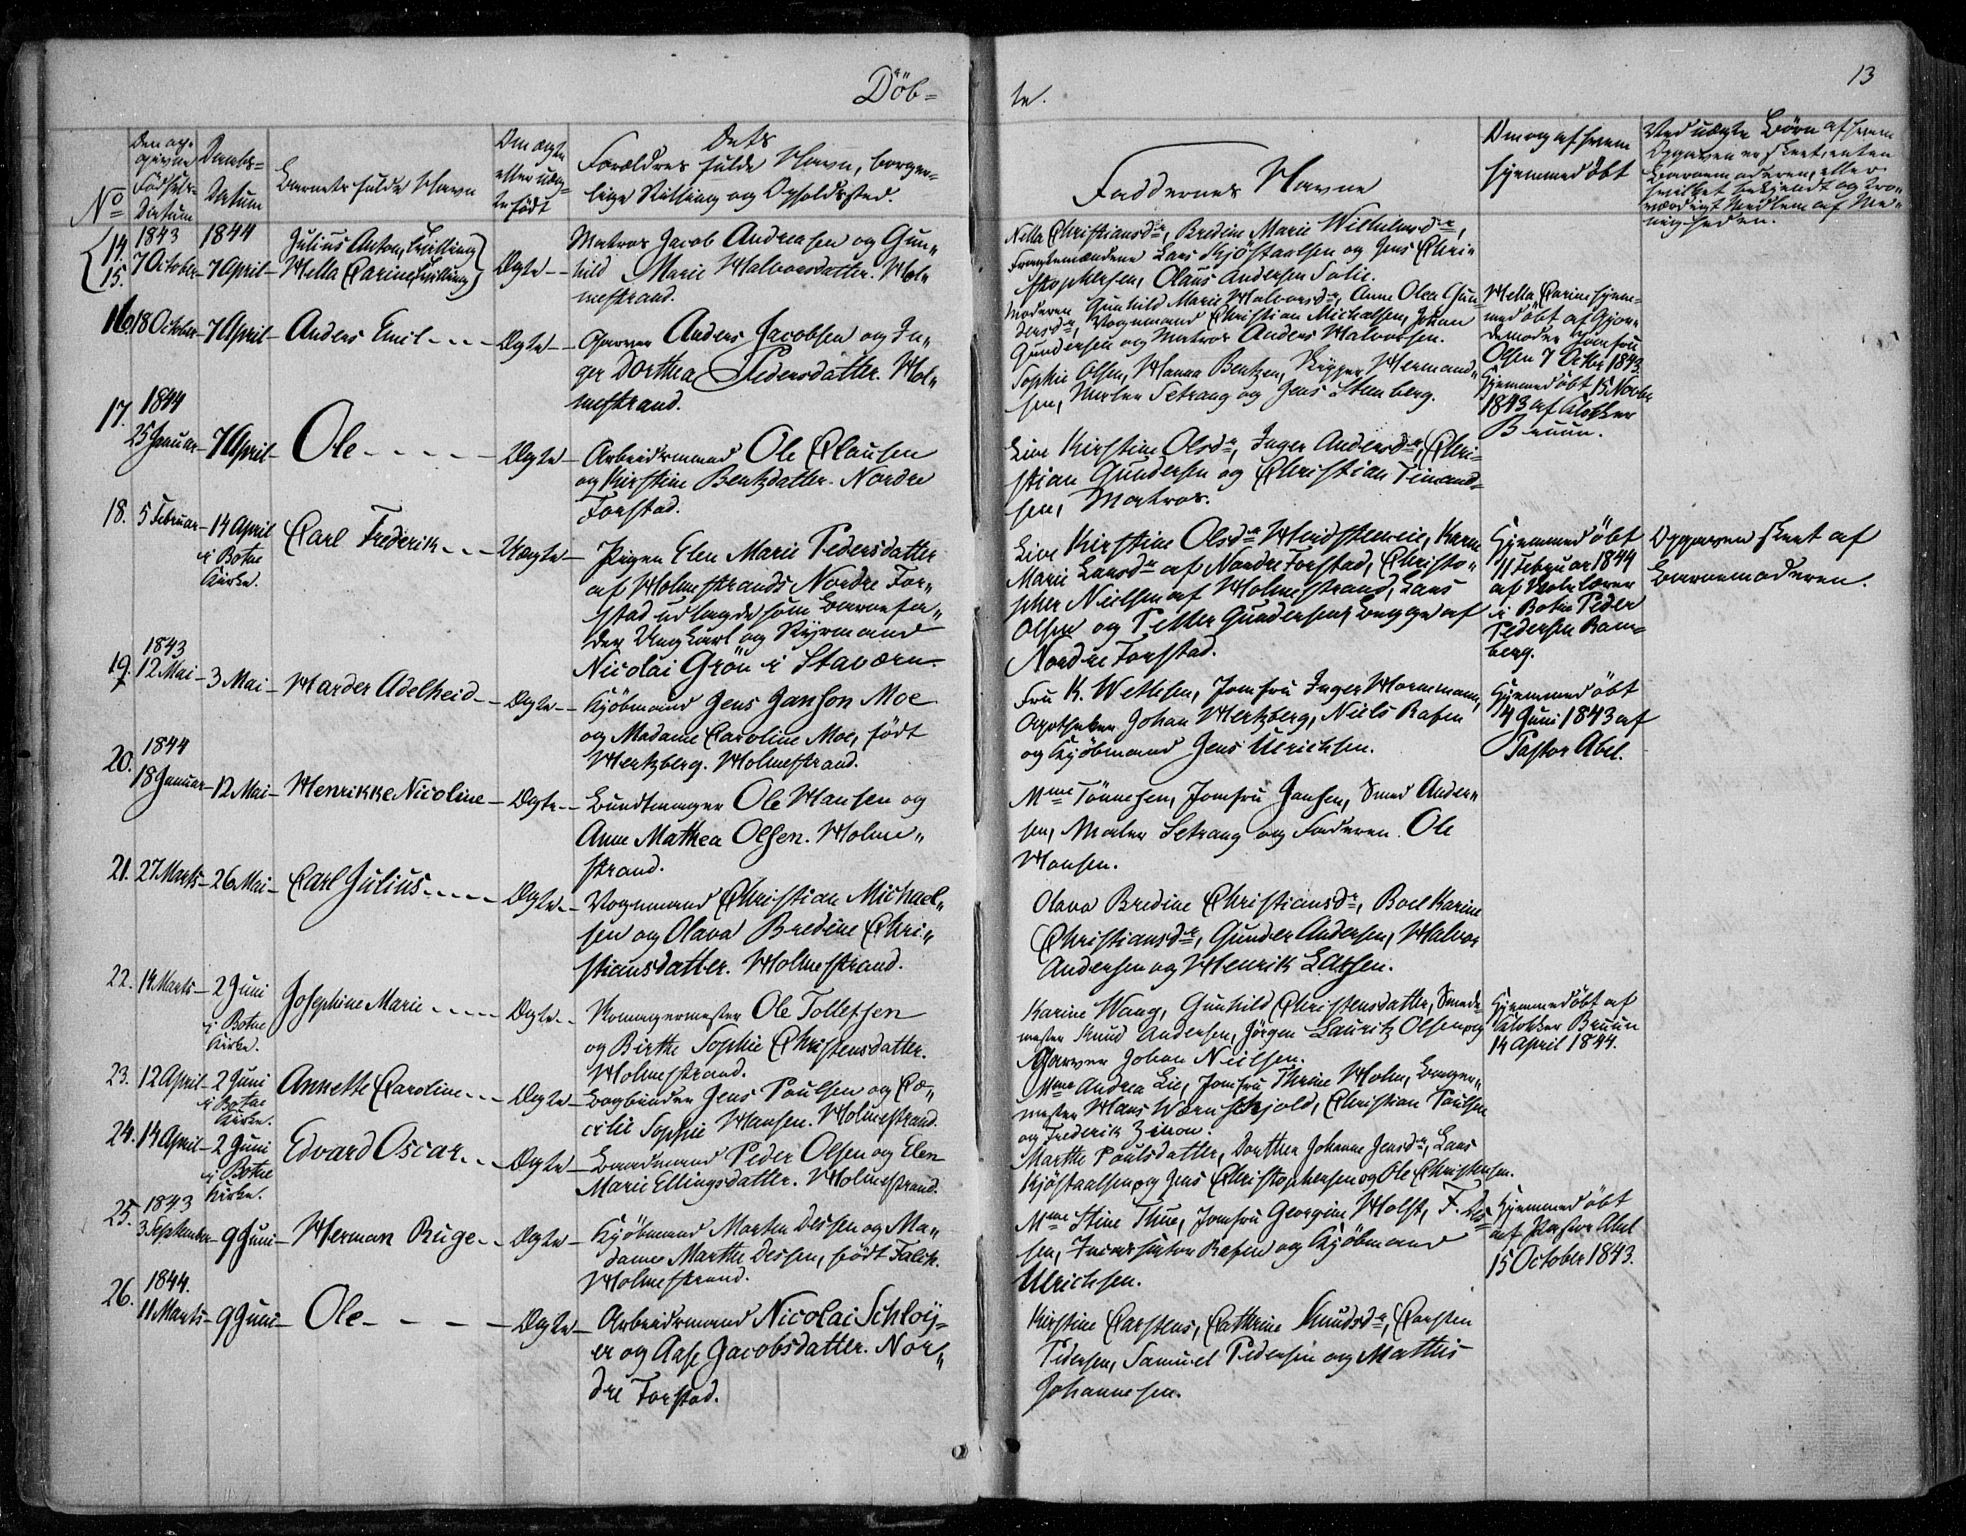 Döb=
te.
13
No
Den op-
givne
Fødsels-
Datum
Daabs-
Datum
Barnets fulde Navn
Om ægte
eller uæg-
te født
Dets
Forældres fulde Navn, borger-
lige Stilling og Opholdssted.
Faddernes Navne
Om og af hvem
hjemmedöbt
Ved uægte Börn af hvem
Opgaven er skeet, enten
Barnemoderen, eller
hvilket bekjendt og tro-
værdigt Medlem af Me-
nigheden.
14.
15.
1843
7 October
1844
7 April
Julius Anton, Tvilling
Hella Carine, Tvilling
Ægte
Matros Jacob Andreasen og Gun-
hild Marie Halvorsdatter. Hol-
mestrand.
Nella Christiansdr, Bredine Marie Wilhelmsdr,
Fragtemændene Lars Kjöstaelsen og Jens Chri-
stophersen, Claus Andersen Solie.
Moderen Gunhild Marie Halvorsdr, Anne Olea Gun-
dersdr, Vognmand Christian Michaelsen, Johan
Gundersen og Matros Anders Halvorsen.
Hella Carine hjem-
medöbt af Gjor-
demoder Jomfru
Olsen 7 Octbr 1843.
16.
18 October
7 April
Anders Emil
Ægte
Garver Anders Jacobsen og In-
ger Dorthea Pedersdatter. Hol-
mestrand.
Sophie Olsen, Hanna Bentzen, Skipper Hermand-
sen, Maler Setrang og Jens Stenberg.
Hjemmedöbt 15 Novbr
1843 af Klokker
Bruun.
17.
1844
25 Januar
7 April
Ole
Ægte
Arbeidsmand Ole Clausen
og Kirstine Bentzdatter. Nordre
Forstad.
Live Kirstine Olsdr, Inger Andersdr, Chri-
stian Gundersen og Christian Simand-
sen, Matros.
18.
5 Februar
14 April
i Botne
Kirke.
Carl Frederik
Uægte
Pigen Elen Marie Pedersdatter
af Holmestrands Nordre For-
stad udlagde som Barnefa-
der Ungkarl og Styrmand
Nicolai Grön i Staværn.
Live Kirstine Olsdr, Karen
Marie Larsdr af Nordre Forstad, Christo-
pher Nielsen af Holmestrand, Lars
Olsen og Petter Gundersen, begge af
Nordre Forstad.
Hjemmedöbt
11 Februar 1844
af Skolelærer
i Botne Peder
Pedersen Ram-
berg.
Opgaven skeet af
Barnemoderen.
19.
1843
12 Mai
3 Mai
Harder Adelheid
Ægte
Kjöbmand Jens Janson Moe
og Madame Caroline Moe, födt
Hertzberg. Holmestrand.
Fru K. Wetlesen, Jomfru Inger Hornemann,
Apotheker Johan Hertzberg, Niels Rafen
og Kjöbmand Jens Ulrichsen.
Hjemmedöbt
4 Juni 1843 af
Pastor Abel.
20.
1844
18 Januar
12 Mai
Henrikke Nicoline
Ægte
Bundtmager Ole Hansen og
Anne Mathea Olsen. Holme-
strand.
Mme Tönnesen, Jomfru Jansen, Smed Ander-
sen, Maler Setrang og Faderen Ole
Hansen.
21.
27 Marts
26 Mai
Carl Julius
Ægte
Vognmand Christian Michael-
sen og Olava Bredine Chri-
stiansdatter. Holmestrand.
Olava Bredine Christiansdr, Boel Karine
Christiansdr, Gunder Andersen, Halvor
Andersen og Henrik Larsen.
22.
14 Marts
2 Juni
i Botne
Kirke.
Josephine Marie
Ægte
Skomagermester Ole Tollefsen
og Birthe Sophie Christensdatter.
Holmestrand.
Karine Wang, Gunhild Christensdatter, Smede-
mester Knud Andersen, Jörgen Lauritz Olsen og
Garver Johan Nielsen.
Hjemmedöbt af
Klokker Bruun
14 April 1844.
23.
12 April
2 Juni
i Botne
Kirke.
Annette Caroline
Ægte
Bogbinder Jens Poulsen og Cæ-
cilie Sophie Hansen. Holmestrand.
Mme Andrea Lie, Jomfru Thrine Holm, Bager-
mester Hans Wernskjold, Christian Poulsen
og Frederik Simon.
24.
14 April
2 Juni
i Botne
Kirke.
Edvard Oscar
Ægte
Baadmand Peder Olsen og Elen
Marie Ellingsdatter. Holmestrand.
Marthe Poulsdatter, Dorthea Johanne Jensdr, Lars
Kjöstaelsen og Jens Christophersen og Ole Christensen.
25.
1843
3 September
9 Juni
Herman Ruge
Ægte
Kjöbmand Morten Dersen og Ma-
dame Marthe Dersen, född Falck.
Holmestrand.
Mme Stine Thue, Jomfru Georgine Holst, F.
sen, Rafen og Kjöbmand
Ulrichsen.
Hjemmedöbt
af Pastor Abel
15 October 1843.
26.
1844.
11 Marts
9 Juni
Ole
Ægte
Arbeidsmand Nicolai Schlöj-
er og Aase Jacobsdatter. Nor-
dre Forstad.
Kirstine Carstens, Cathrine Knudsdr, Carsten
Pedersen, Samuel Pedersen og Mathis
Johannesen.